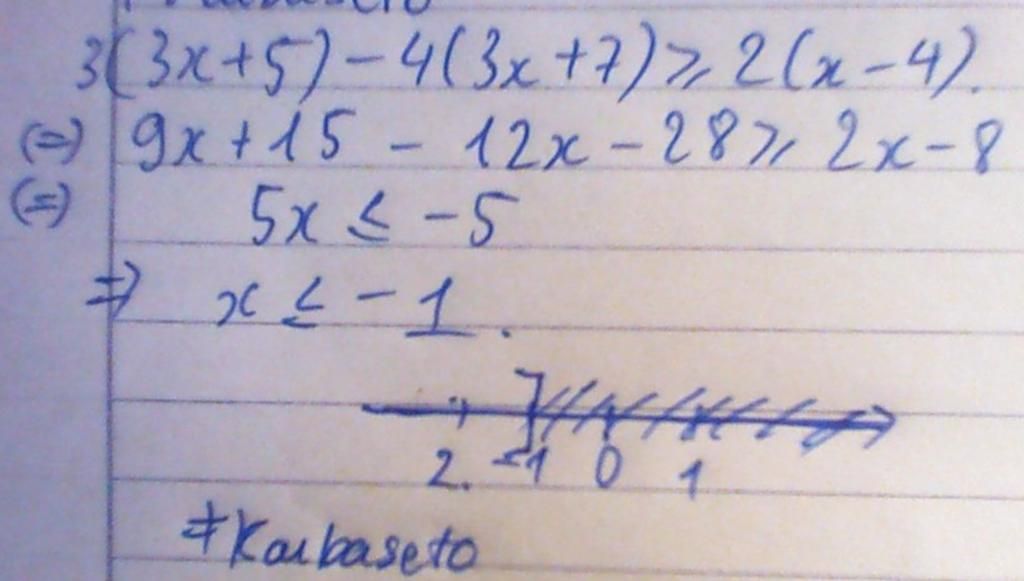 3(3x+5)-4(3x+7)⩾2(x-4).
(=) 9x+15 - 12x-28⩾2x-8
(=) 5x ≤ -5
=> x ≤ -1.
2. -1 0 1
≠Kaubaseto